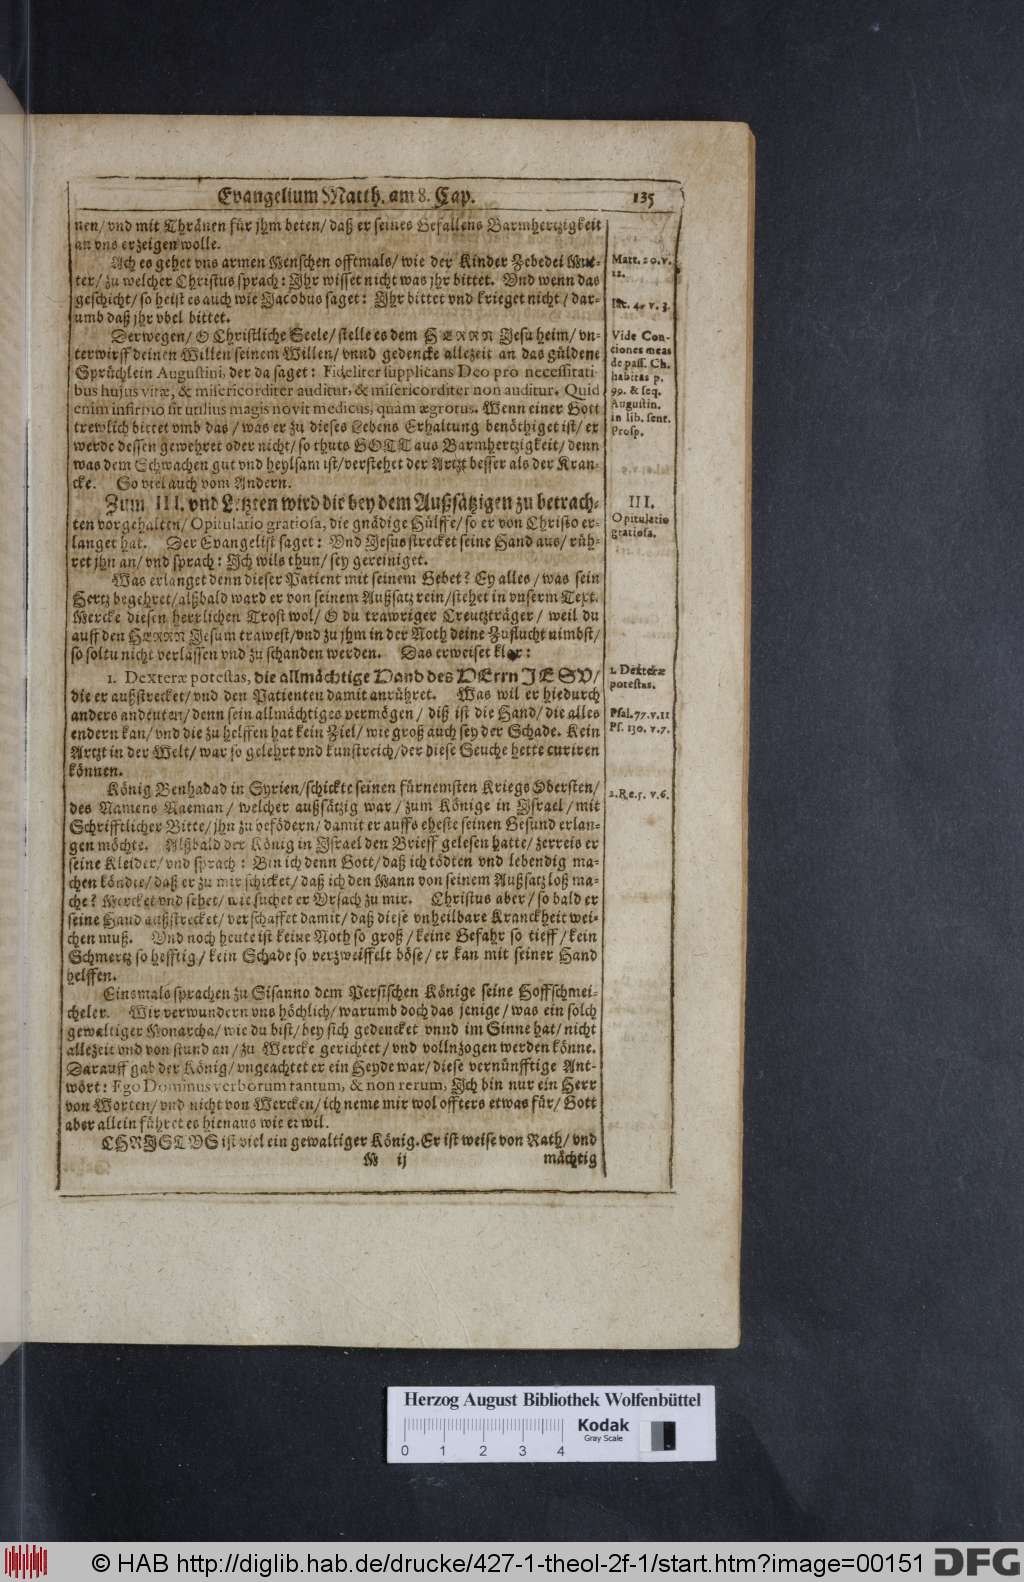 Evangelium Matth. am 8. Cap. 135
nen/ vnd mit Thränen für jhm beten/ daß er seines Gefallens Barmhertzigkeit
an vns erzeigen wolle.
Ach es gehet vns armen Menschen offtmals/ wie der Kinder Zebedei Mut-
ter/ zu welcher Christus sprach: Jhr wisset nicht was jhr bittet. Vnd wenn das
geschicht/ so heist es auch wie Jacobus saget: Jhr bittet vnd krieget nicht/ dar-
umb daß jhr vbel bittet.
Derwegen/ O Christliche Seele/ stelle es dem HERRN Jesu heim/ vn-
terwirff deinen Willen seinem Willen/ vnnd gedencke allezeit an das güldene
Sprüchlein Augustini, der da saget: Fideliter supplicans Deo pro necessitati
bus hujus vitæ, & misericorditer auditur, & misericorditer non auditur. Quid
enim infirmo sit utilius magis novit medicus, quàm ægrotus. Wenn einer Gott
trewlich bittet vmb das/ was er zu dieses Lebens Erhaltung benöthiget ist/ er
werde dessen gewehret oder nicht/ so thuts GOTT aus Barmhertzigkeit/ denn
was dem Schwachen gut vnd heylsam ist/ verstehet der Artzt besser als der Kran-
cke. So viel auch vom Andern.
Zum III. vnd Letzten wird dir bey dem Außsätzigen zu betrach-
ten vorgehalten/ Opitulatio gratiosa, die gnädige Hülffe/ so er von Christo er-
langet hat. Der Evangelist saget: Vnd Jesus strecket seine Hand aus/ rüh-
ret jhn an/ vnd sprach: Jch wils thun/ sey gereiniget.
Was erlanget denn dieser Patient mit seinem Gebet? Ey alles/ was sein
Hertz begehret/ alßbald ward er von seinem Außsatz rein/ stehet in vnserm Text.
Mercke diesen herrlichen Trost wol/ O du trawriger Creutzträger/ weil du
auff den HERRN Jesum trawest/ vnd zu jhm in der Noth deine Zuflucht nimbst/
so soltu nicht verlassen vnd zu schanden werden. Das erweiset klar:
1. Dexteræ potestas, die allmächtige Hand des HErrn JESV/
die er außstrecket/ vnd den Patienten damit anrühret. Was wil er hiedurch
anders andeuten/ denn sein allmächtiges vermögen/ diß ist die Hand/ die alles
endern kan/ vnd die zu helffen hat kein Ziel/ wie groß auch sey der Schade. Kein
Artzt in der Welt/ war so gelehrt vnd kunstreich/ der diese Seuche hette curiren
können.
König Benhadad in Syrien/ schickte seinen fürnemsten Kriegs Obersten/
des Namens Naeman/ welcher außsätzig war/ zum Könige in Jsrael/ mit
Schrifftlicher Bitte/ jhn zu befödern/ damit er auffs eheste seinen Gesund erlan-
gen möchte. Alßbald der König in Jsrael den Brieff gelesen hatte/ zerreis er
seine Kleider/ vnd sprach: Bin ich denn Gott/ daß ich tödten vnd lebendig ma-
chen köndte/ daß er zu mir schicket/ daß ich den Mann von seinem Außsatz loß ma-
che? Mercket vnd sehet/ wie suchet er Vrsach zu mir. Christus aber/ so bald er
seine Hand außstrecket/ verschaffet damit/ daß diese vnheilbare Kranckheit wei-
chen muß. Vnd noch heute ist keine Noth so groß/ keine Gefahr so tieff/ kein
Schmertz so hefftig/ kein Schade so verzweiffelt böse/ er kan mit seiner Hand
helffen.
Einsmals sprachen zu Sisanno dem Persischen Könige seine Hoffschmei-
cheler. Wir verwundern vns höchlich/ warumb doch das jenige/ was ein solch
gewaltiger Monarcha/ wie du bist/ bey sich gedencket vnnd im Sinne hat/ nicht
allezeit vnd von stund an/ zu Wercke gerichtet/ vnd vollnzogen werden könne.
Darauff gab der König/ vngeachtet er ein Heyde war/ diese vernünfftige Ant-
wort: Ego Dominus verborum tantum, & non rerum, Jch bin nur ein Herr
von Worten/ vnd nicht von Wercken/ ich neme mir wol offters etwas für/ Gott
aber allein führet es hienaus wie er wil.
CHRISTVS ist viel ein gewaltiger König. Er ist weise von Rath/ vnd
M ij mächtig
Matt. 20. v.
22.
Jac. 4. v. 3.
Vide Con-
ciones meas
de pass. Ch.
habitas p.
99. & seq.
Augustin.
in lib. sent.
Prosp.
III.
Opitulatio
gratiosa.
1. Dexteræ
potestas.
Psal. 77. v. 11
Ps. 130. v. 7.
2. Re. 5. v. 6.
Herzog August Bibliothek Wolfenbüttel
Kodak
Gray Scale
0 1 2 3 4
© HAB http://diglib.hab.de/drucke/427-1-theol-2f-1/start.htm?image=00151
DFG